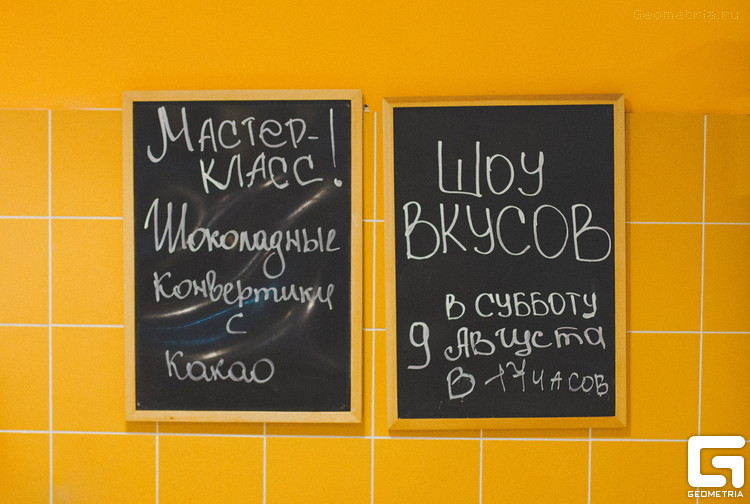 Geometria.ru
Мастер-
класс!
Шоколадные
конвертики
с
какао
Шоу
вкусов
в субботу
9 августа
в 17 часов
GEOMETRIA